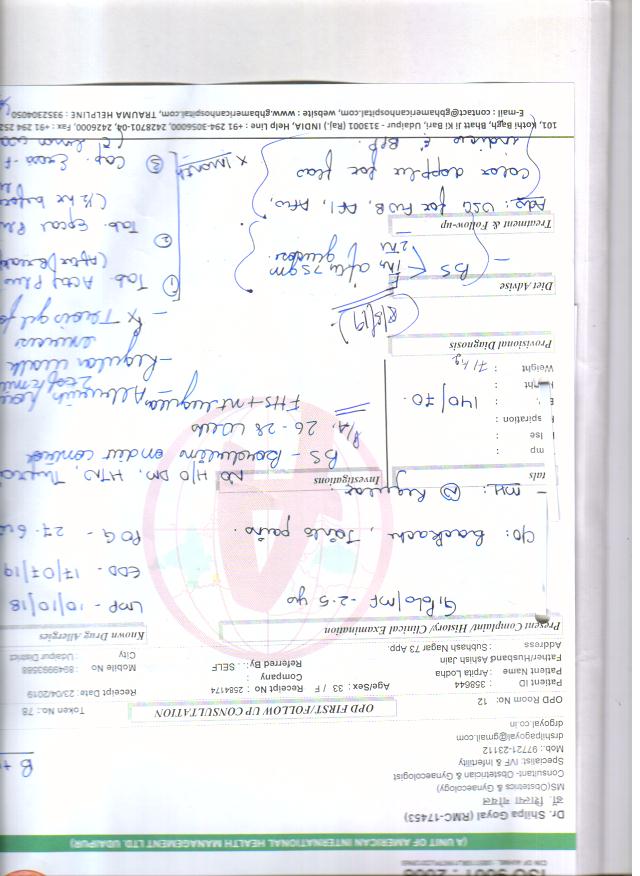 ISO 9001 : 2008
(A UNIT OF AMERICAN INTERNATIONAL HEALTH MANAGEMENT LTD. UDAIPUR)
Dr. Shilpa Goyal (RMC-17453)
डॉ. शिल्पा गोयल
MS(Obstetrics & Gynaecology)
Consultant- Obstetrician & Gynaecologist
Specialist: IVF & Infertility
Mob.: 97721-23112
drshilpagoyal@gmail.com
drgoyal.co.in
B +
OPD Room No: 12
OPD FIRST/FOLLOW UP CONSULTATION
Token No.: 78
Patient ID : 358644
Age/Sex : 33 / F Receipt No : 2584174
Receipt Date: 23/04/2019
Patient Name : Arpita Lodha
Company :
Mobile No : 8949993588
Father/Husband Ashish Jain
Referred By: : SELF
City : Udaipur District
Address : Subhash Nagar 73 App.
Present Complaint/ History/ Clinical Examination
Known Drug Allergies
G1P0L0/MF - 2.5 yo
LMP - 10/10/18
EDD - 17/07/19
C/O: Backach, Joints pains.
POG - 27.6
MH: (N) Regular.
tals
Investigations
NO H/O DM, HTN,
mp :
BS - Borderline under control
lse :
spiration :
P/A. 26-28 weeks
140/70.
FHS +nt
ght :
Weight : 71 kg
- Regular walk
Provisional Diagnosis
exercises
8/5/19
Diet Advise
① Tab.
- BS
F
1 hr
2 hr
75 gm
glucose.
②
Tab.
Treatment & Follow-up
Adv: USG for FWB, AFI,
(1/2 hr before
color doppler for flow
③ Cap.
x 1 month
indices & BPP.
101, Kothi Bagh, Bhatt Ji Ki Bari, Udaipur - 313001 (Raj.) INDIA, Help Line : +91 294-3056000, 2428701-04, 2426000, Fax : +91 294 252
E-mail : contact@gbhamericanhospital.com, website : www.gbhamericanhospital.com, TRAUMA HELPLINE : 9352304050